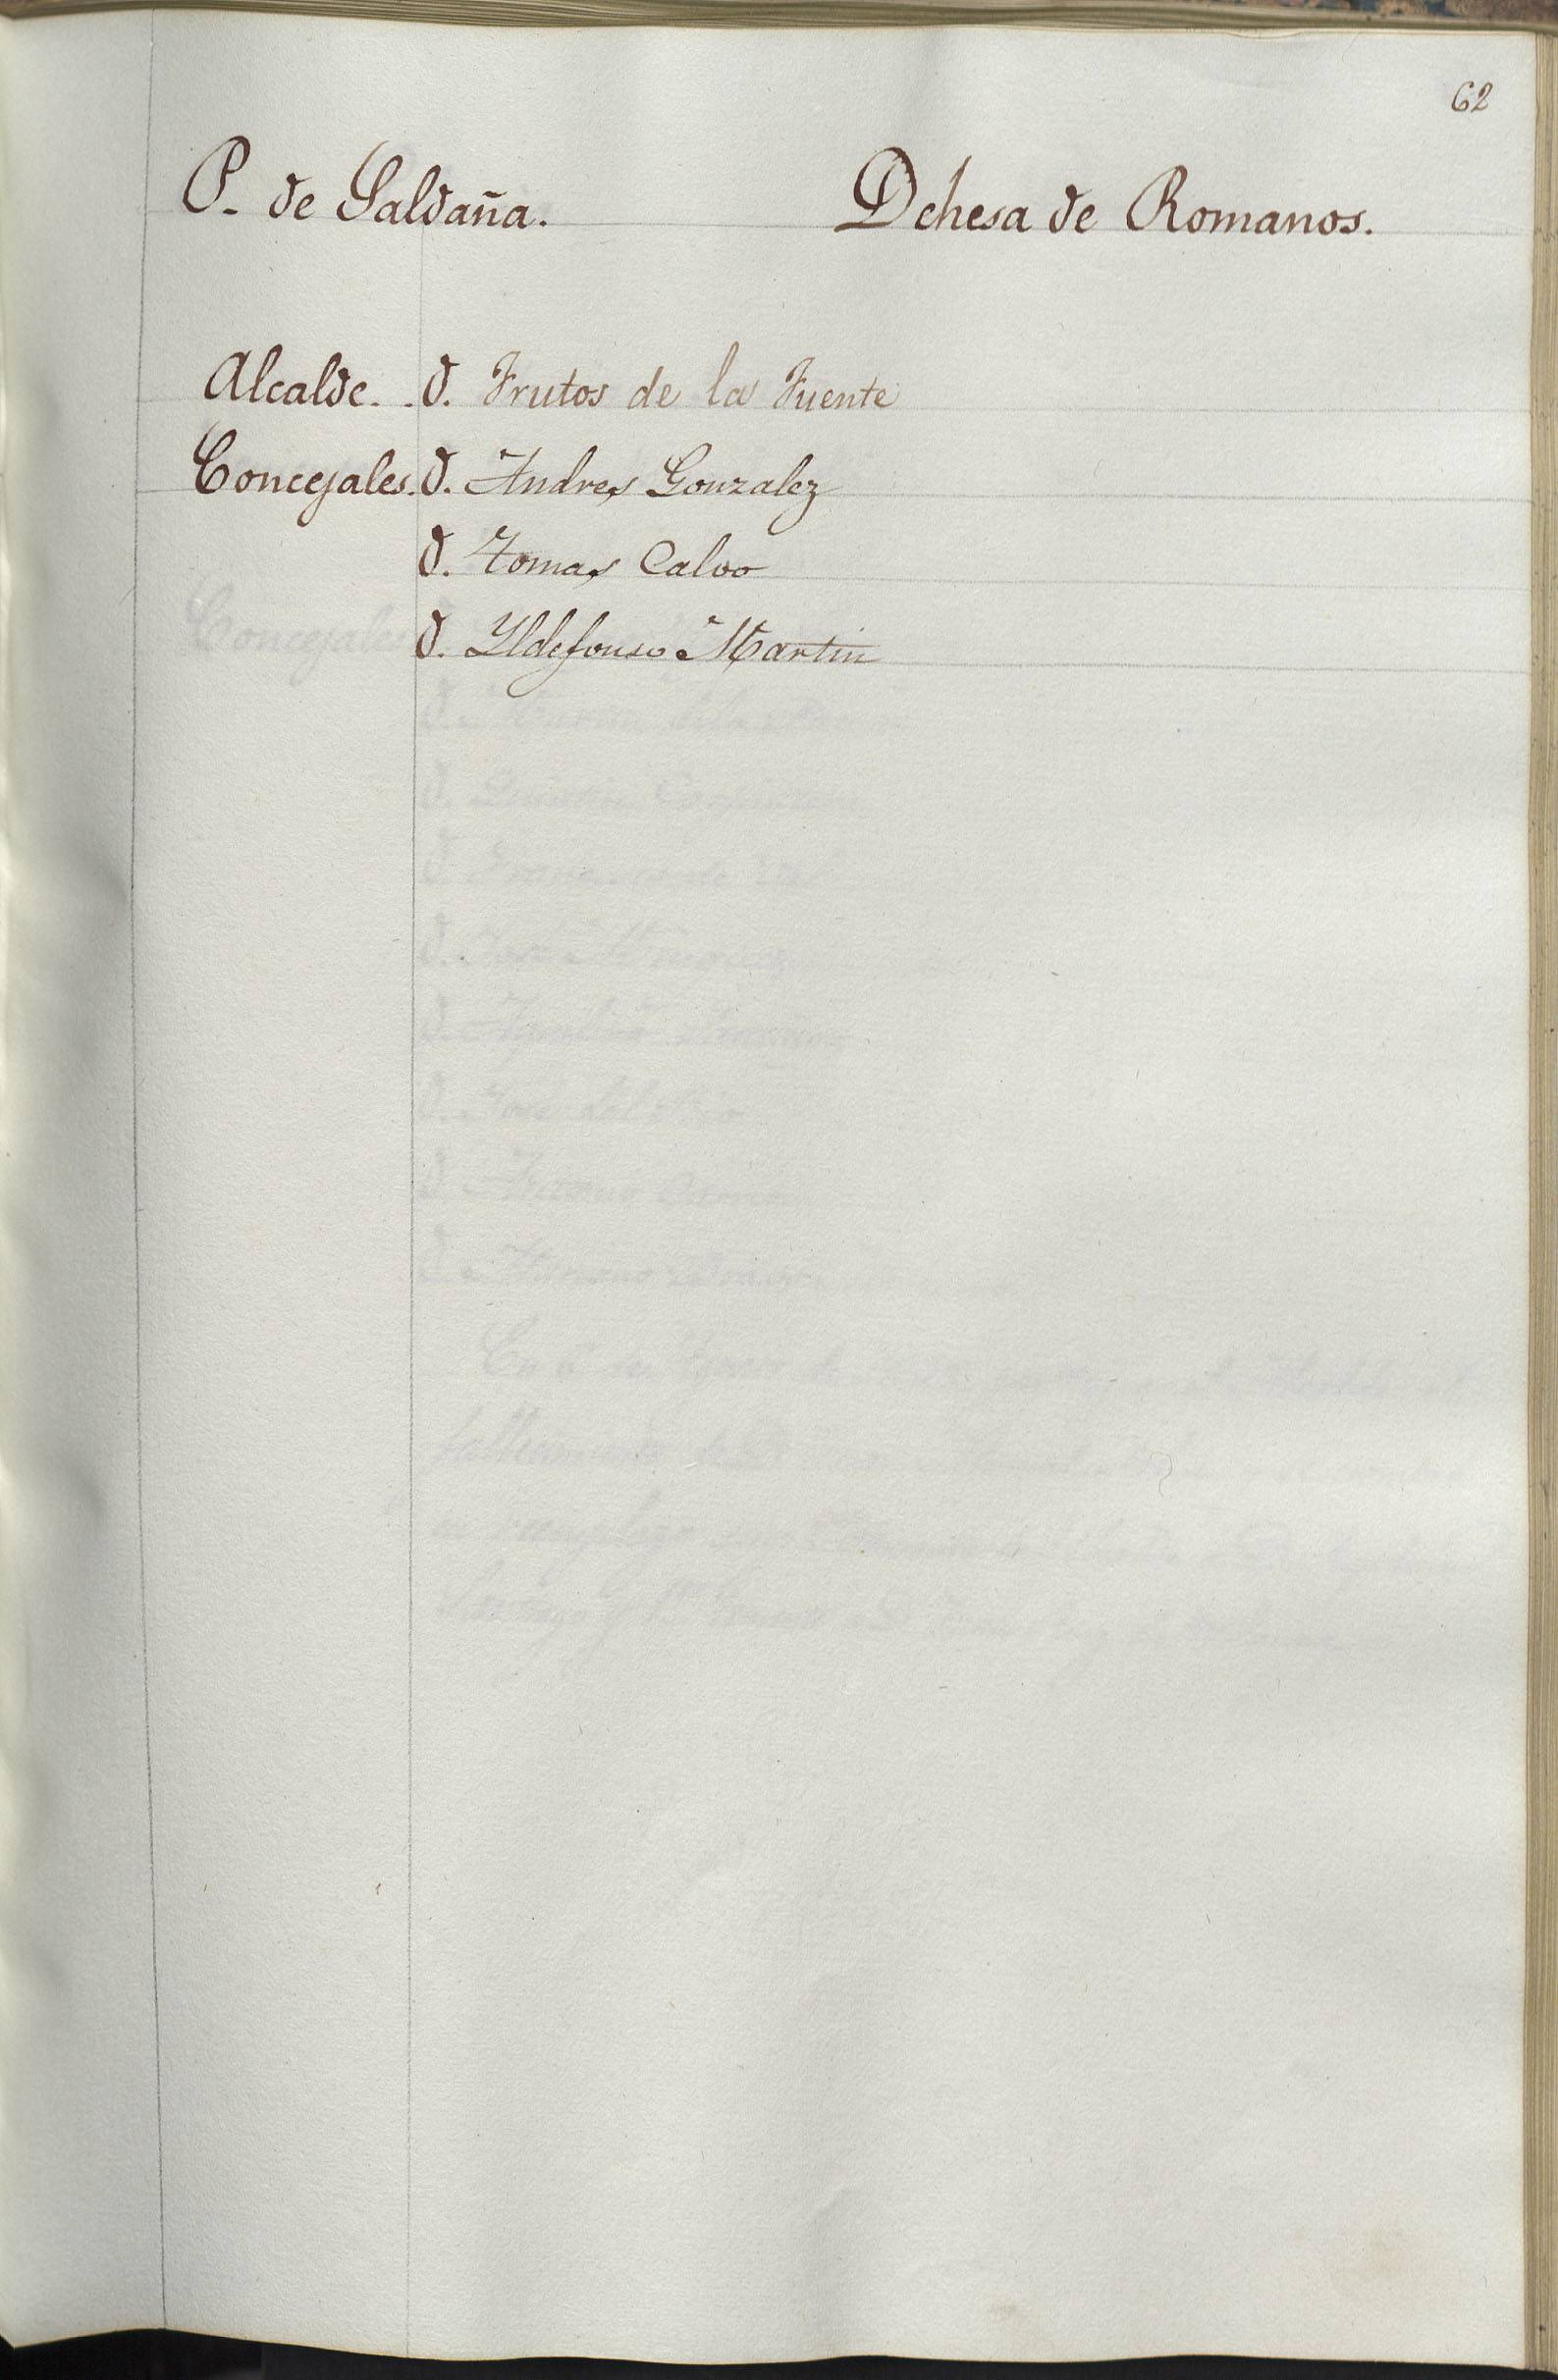 62
P. de Saldaña. Dehesa de Romanos.
Alcalde. . D. Frutos de la Fuente
Concejales. D. Andres Gonzalez
D. Tomas Calvo
D. Yldefonso Martin